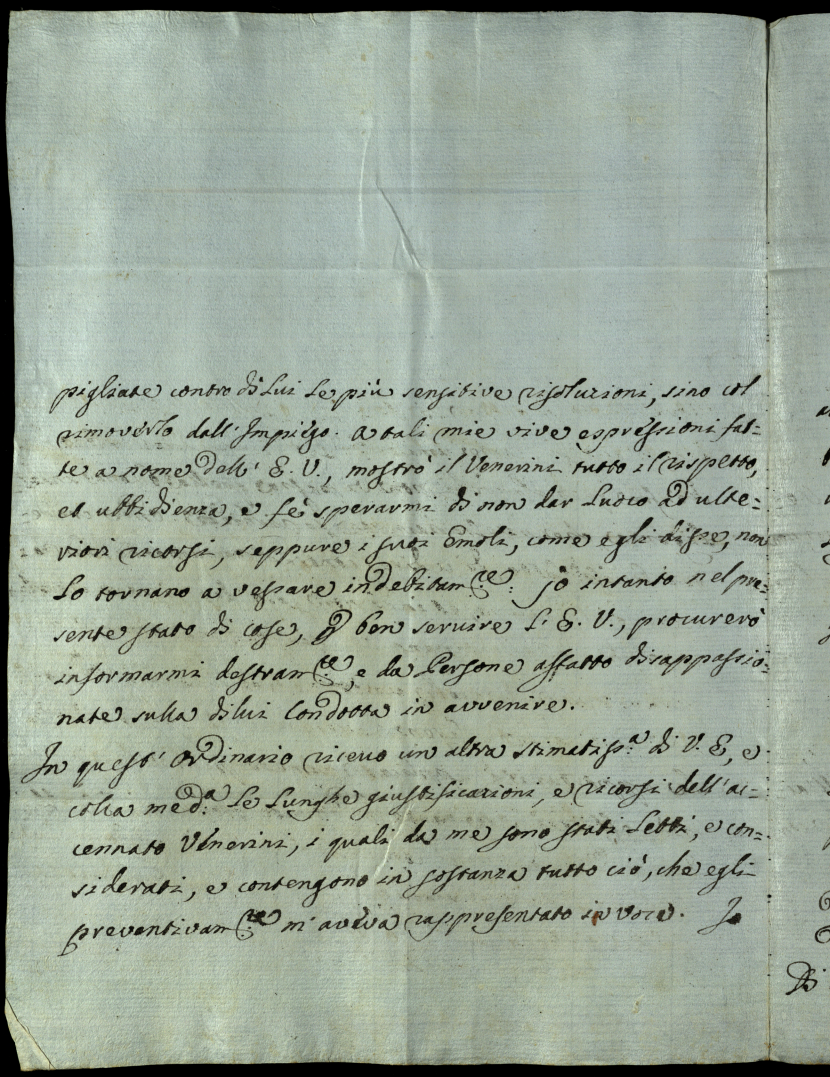 pigliate contro di Lui Le più sensitive risoluzioni, sino col
rimoverlo dall'Impiego. A tali mie vive espressioni fat=
te a nome dell' E. V., mostrò il Venerini tutto il rispetto,
et ubbidienza, e fè sperarmi di non dar Luoco ad ulte=
riori ricorsi, seppure i suoi Emoli, come egli disse, non
Lo tornano a vessare indebitam:te: Jo intanto nel pre=
sente stato di cose, p ben servire L' E. V., procurerò
informarmi destram:te, e da Persone affatto disappassio=
nate sulla di lui Condotta in avvenire.
In quest' Ordinario ricevo un altra stimatiss:a di V. E., e
colla med:a Le Lunghe giustificazioni, e ricorsi dell' ac=
cennato Venerini, i quali da me sono stati Letti, e con=
siderati, e contengono in sostanza tutto ciò, che egli
preventivam:te m' aveva rappresentato in voce. Jo